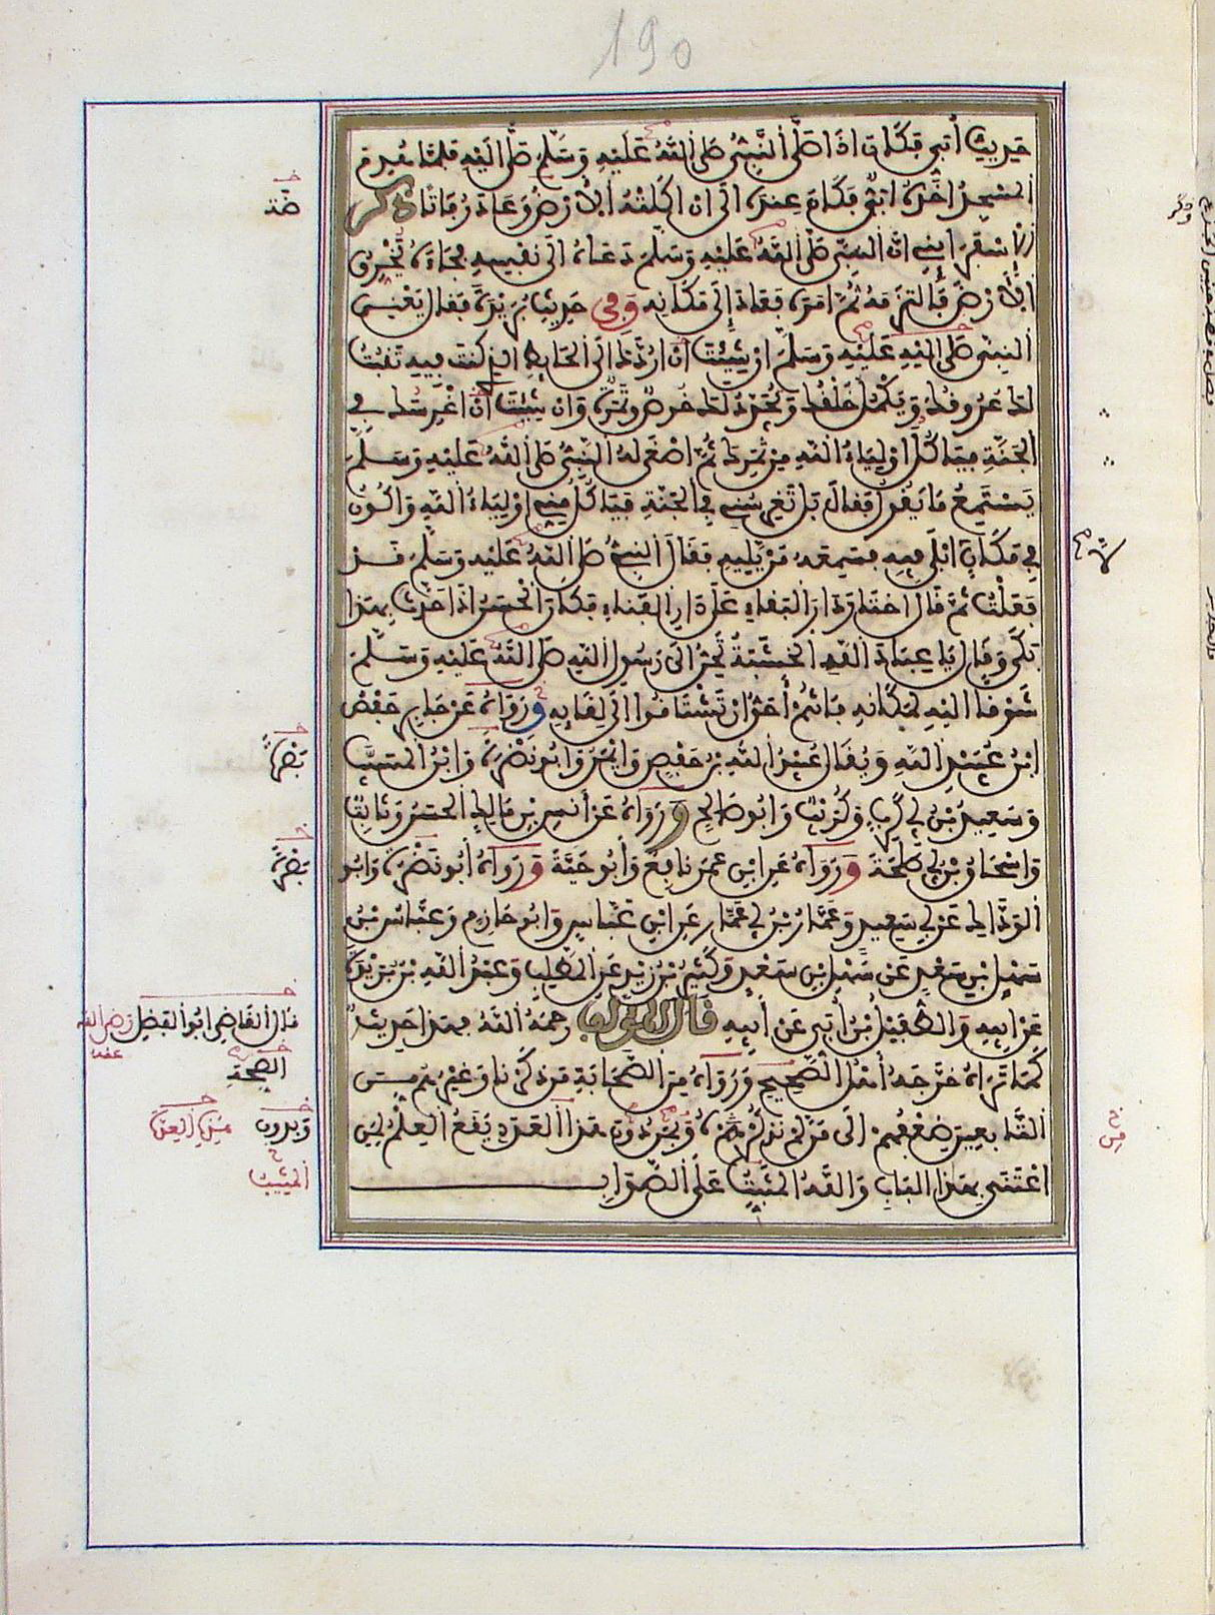 190
حديث أبي فكان اذا صلى النبي صلى الله عليه وسلم صلى اليه فلما هدم
المسجد اخذه ابي فكان عنده الى ان اكلته الأرض وعاد رفاتا وذكر
الإسفرايني ان النبي صلى الله عليه وسلم دعاه الى نفسه فجاءه يخرق
الأرض فالتزمه ثم امره فعاد إلى مكانه وفي حديث بريدة فقال يعني
النبي صلى الله عليه وسلم ان شئت ان اردك الى الحايط الذي كنت فيه تنبت
لك عروقك ويكمل خلقك ويجدد لك خوص وثمرة وان شئت ان اغرسك في
الجنة فياكل اولياء الله من ثمرك ثم اصغى له النبي صلى الله عليه وسلم
يستمع ما يقول فقال بل تغرسني في الجنة فياكل مني اولياء الله واكون
في مكان لا ابلى فيه فسمعه من يليه فقال النبي صلى الله عليه وسلم قد
فعلت ثم قال اختار دار البقاء على دار الفناء فكان الحسن اذا حدث بهذا
بكى وقال يا عباد الله الخشبة تحن الى رسول الله صلى الله عليه وسلم
شوقا اليه لمكانه فانتم أحق ان تشتاقوا الى لقايه ورواه عن جابر حفص
ابن عبيد الله ويقال عبد الله بن حفص وايمن وابو نضرة وابن المسيب
وسعيد بن ابي كرب وكريب وابو صالح ورواه عن أنس بن مالك الحسن وثابت
واسحاق بن ابي طلحة ورواه عن ابن عمر نافع وأبو حية ورواه أبو نضرة وابو
الوداك عن ابي سعيد وعمار بن ابي عمار عن ابن عباس وابو حازم وعباس بن
سهل بن سعد عن سهل بن سعد وكثير بن زيد عن المطلب وعبد الله بن بريدة
عن ابيه والطفيل بن أبي عن أبيه قال المؤلف رحمه الله فهذا حديث
كما تراه خرجه أهل الصحيح ورواه من الصحابة من ذكرنا وغيرهم من
التابعين ضعفهم الى من لم نذكره وبدون هذا العدد يقع العلم لمن
اعتنى بهذا الباب والله المثبت على الصواب
نضرة
نضرة
قال القاضي ابو الفضل رضي الله
عنه
الصحة
وبدون